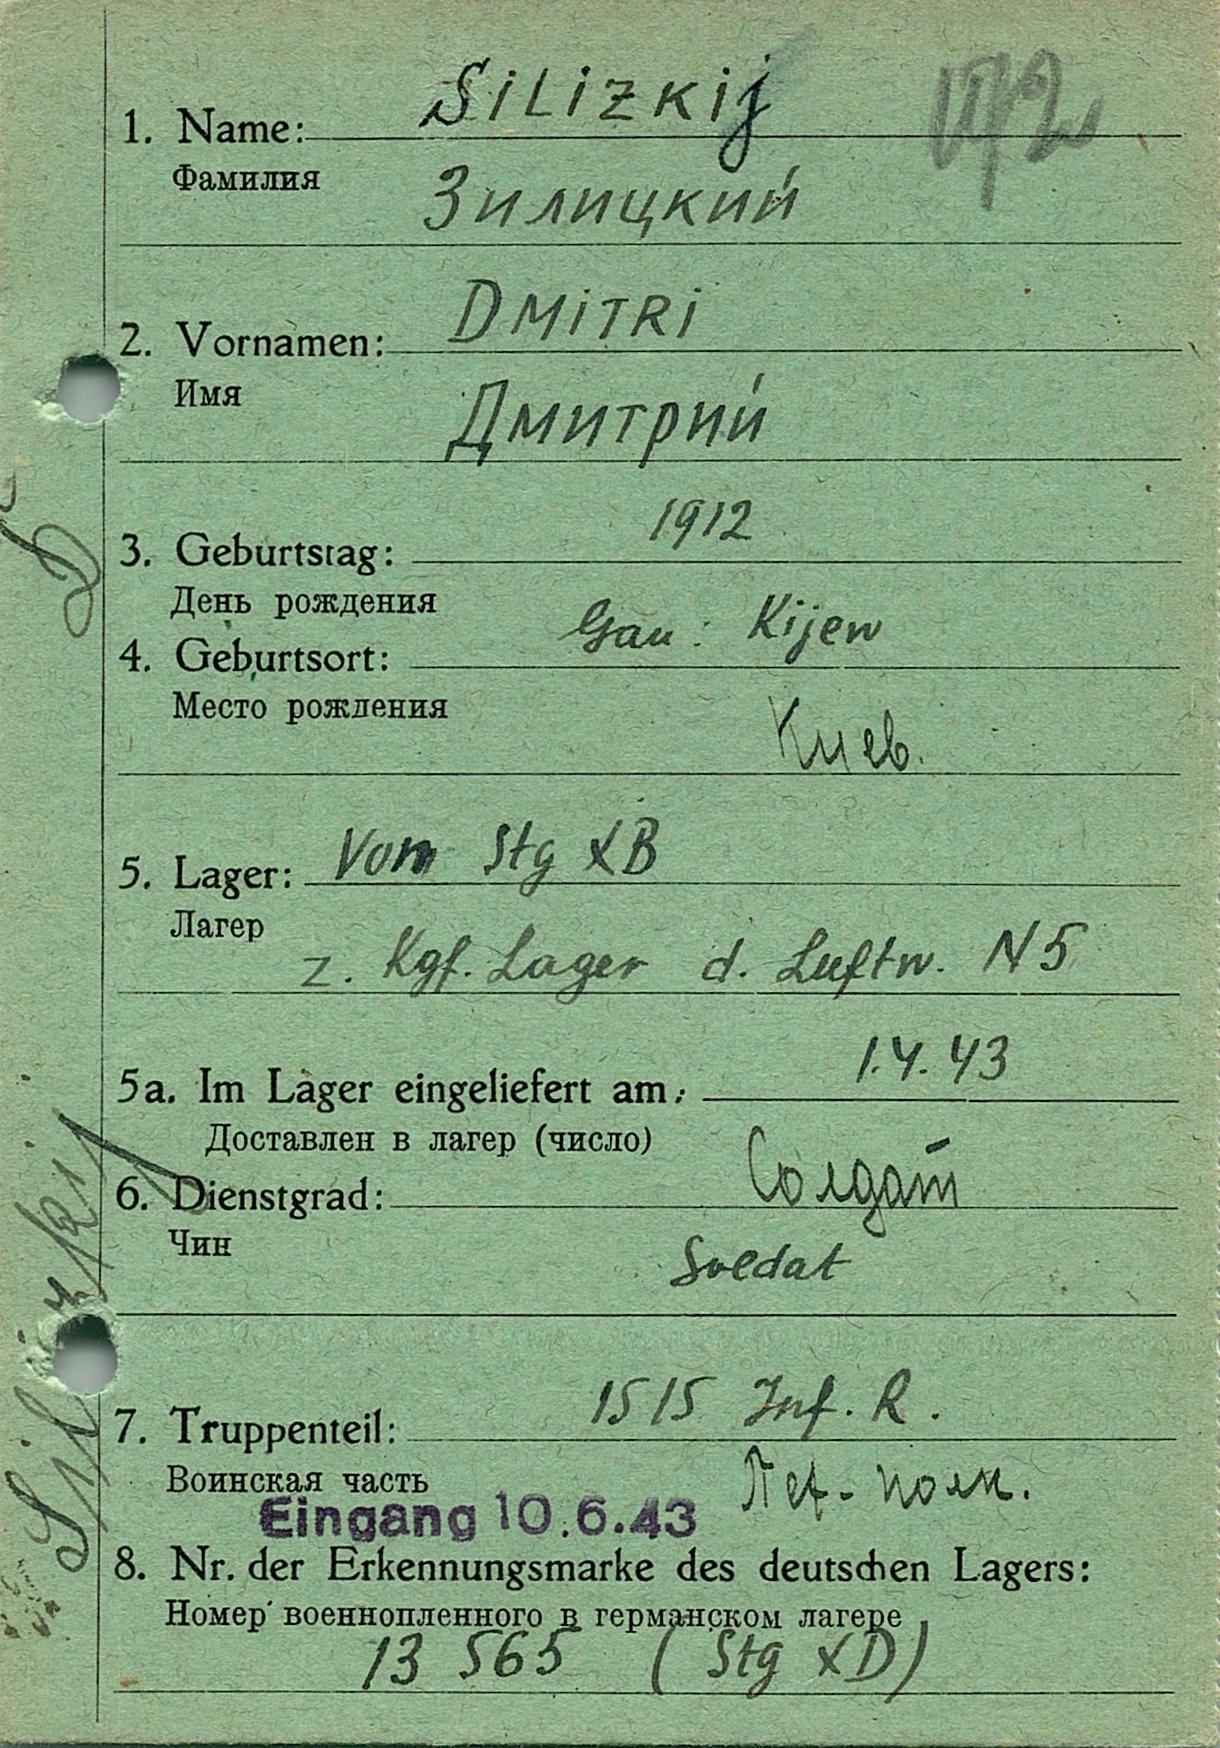 1. Name: SiLiZKij
Фамилия
Зилицкий
2. Vornamen: DMiTRi
Имя
Дмитрий
3. Geburtstag: 1912
День рождения
4. Geburtsort: Gau: Kijew
Место рождения
Киев.
5. Lager: Vom Stg XB
Лагер
z. Kgf. Lager d. Luftw. N 5
5a. Im Lager eingeliefert am: 1.4.43
Доставлен в лагер (число)
6. Dienstgrad: Солдат
Чин
Soldat
7. Truppenteil: 1515 Inf. R.
Воинская часть
Пех- полк.
Eingang 10.6.43
8. Nr. der Erkennungsmarke des deutschen Lagers:
Номер военнопленного в германском лагере
13 565 (Stg XD)
Silizkij
D